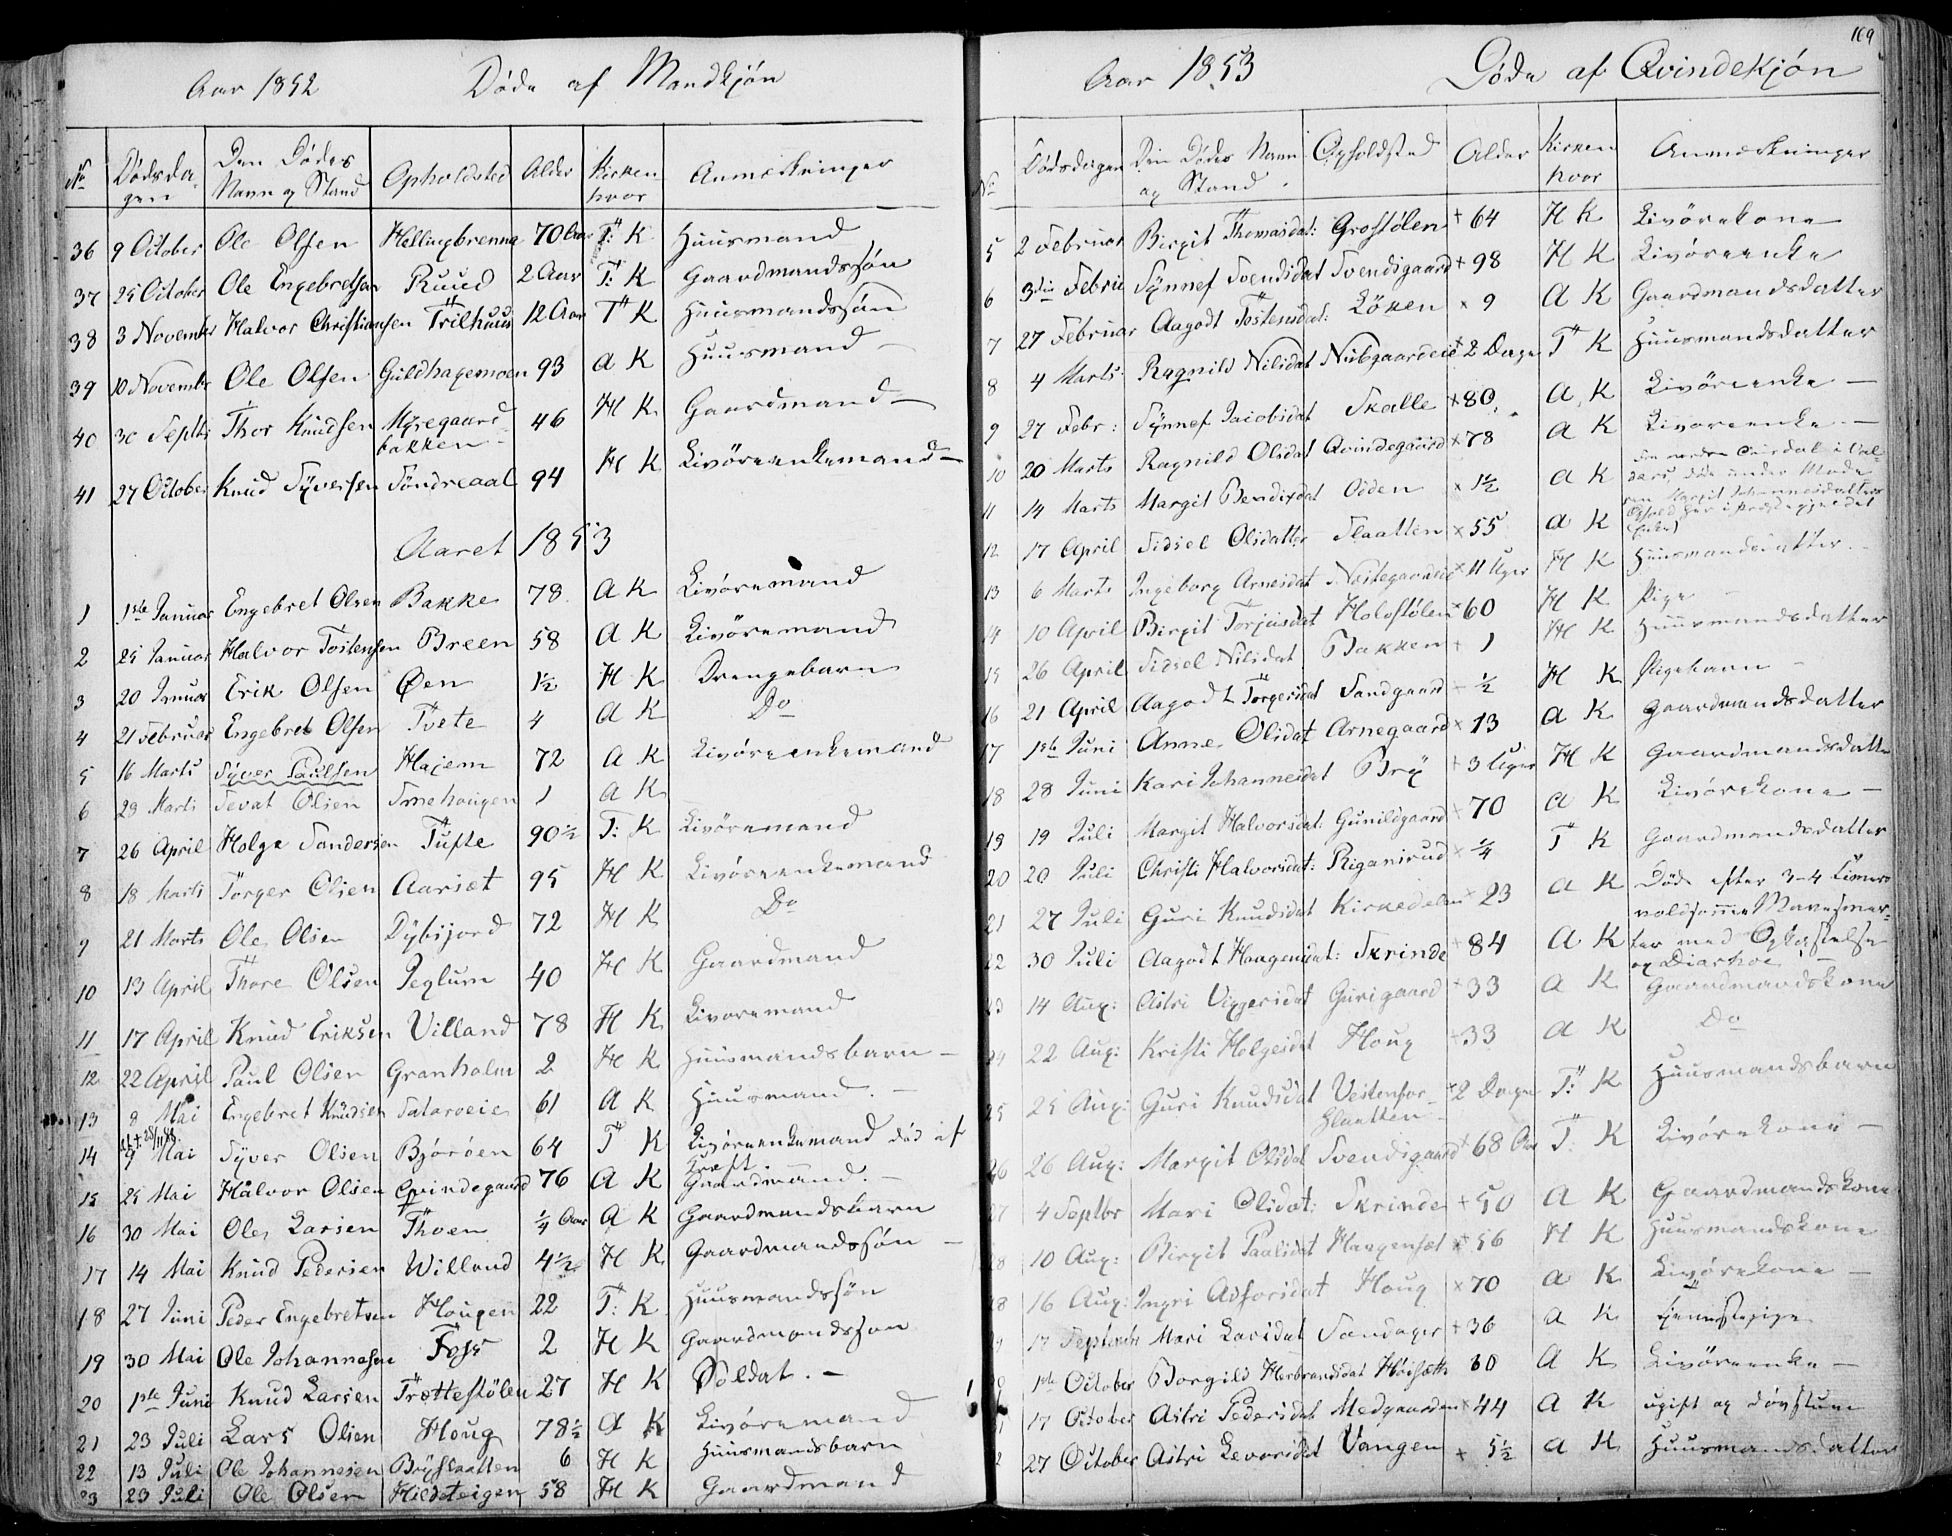 169
Aar 1852 Døde af Mandkjøn
No Dødsdagen Den Dødes Navn og Stand Opholdsted Alder Kirken hvor Anmærkninger
36 9 October Ole Olsen Hellingbrenna 70 Aar T: K Huusmand
37 25 October Ole Engebretsen Ruud 2 Aar T: K Gaardmandssøn
38 3 November Halvor Christiansen Trilhuus 12 Aar T K Huusmandssøn
39 10 Novembr Ole Olsen Guldhagemoen 93 A K Huusmand
40 30 Septbr Thor Knudsen Myregaardbakken 46 H K Gaardmand
41 27 October Knud Syversen Søndreaal 94 H K Livøreenkemand
Aaret 1853
1 1ste Januar Engebret Olsen Bakke 78 A K Livøremand
2 25 Januar Halvor Tostensen Breen 58 A K Livøremand
3 20 Januar Erik Olsen Øen 1½ H K Drengebarn
4 21 Februar Engebret Olsen Tvete 4 A K Do
5 16 Marts Syver Paulsen Hajem 72 A K Livøreenkemand
6 29 Marts Sevat Olsen Smehougen 1 A K
7 26 April Holge Sandersen Tufte 90½ T: K Livøremand
8 18 Marts Torger Olsen Aarset 95 H K Livøreenkemand
9 21 Marts Ole Olsen Dybijord 72 H K Do
10 13 April Thore Olsen Peglum 40 H K Gaardmand
11 17 April Knud Eriksen Villand 78 H K Livøremand
12 22 April Paul Olsen Granholm 2 H K Huusmandsbarn
13 8 Mai Engebret Knudsen Sataroeie 61 A K Huusmand
14 9 Mai Syver Olsen Bjøröen 64 T K Livøreenkemand død af Kræft
15 25 Mai Halvor Olsen Qvindegaard 76 A K Gaardmand
16 30 Mai Ole Larsen Thoen ¼ Aar A K Gaardmandsbarn
17 14 Mai Knud Pedersen Willand 4½ H K Gaardmandssøn
18 27 Juni Peder Engebretsen Hougen 22 T: K Huusmandssøn
19 30 Mai Ole Johannesen Foss 2 H K Gaardmandssøn
20 1ste Juni Knud Larsen Trøttestølen 27 H K Soldat
21 23 Juli Lars Olsen Houg 78½ A K Livøremand
22 13 Juli Ole Johannesen Bryslaatten 6 H K Huusmandsbarn
23 23 Juli Ole Olsen Hildeteigen 58 H K Gaardmand
Aar 1853 Døde af Qvindekjøn
No Dødsdagen Den Dødes Navn og Stand Opholdsted Alder Kirken hvor Anmærkninger
5 2 Februar Birgit Thomasdat: Grostølen + 64 H K Livørekone
6 3die Febru Synnef Svendsdat Svendsgaard + 98 H K Livøreenke
7 27 Februar Aagodt Tostensdat: Løken × 9 A K Gaardmandsdatter
8 4 Marts Ragnild Nilsdat Nubgaardeie × 2 Dage T K Huusmandsdatter
9 27 Febr: Synnef Jacobsdat Skalle × 80 A K Livøreenke
10 20 Marts Ragnild Olsdat Qvindegaard × 78 A K Livøreenke
11 14 Marts Margit Bendixdat Odden × 1½ A K
12 17 April Sidsel Olsdatter Slaatten × 55 A K
13 6 Marts Ingeborg Arnesdat Nestegaardeie × 11 Uger H K Huusmandsdatter
14 10 April Birgit Torjusdat Holostølen × 60 H K Pige
15 26 April Sidsel Nilsdat Bakken + 1 H K Huusmandsdatter
16 21 April Aagodt Torgersdat Sandgaard + ½ H K Pigebarn
17 1ste Juni Anne Olsdat Arnegaard × 13 A K Gaardmandsdatter
18 28 Juni Kari Johannesdat Bry + 3 Uger H K Gaardmandsdatter
19 19 Juli Margit Halvorsdat: Gunildgaard + 70 A K Livørekone
20 20 Juli Christi Halvorsdat: Riganirud × ¼ T K Gaardmandsdatter
21 27 Juli Guri Knudsdat Kirkedelen × 23 A K Død efter 3-4 Timers voldsomme Mavesmerter med Opkastelse og Diarhoe
22 30 Juli Aagodt Haagensdat: Skrinde + 84 A K
23 14 Aug: Astri Viggersdat Gurigaard + 33 A K Gaardmandskone
24 22 Aug: Kristi Holgesdat Houg + 33 A K Do
25 25 Aug: Guri Knudsdat Vestenfor Slaatten × 2 Dage T: K Huusmandsbarn
26 26 Aug: Margit Olsdat Svendsgaard × 68 Aar T: K Livørekone
27 4 Septbr Mari Olsdat: Skrinde + 50 A K Gaardmandskone
28 10 Aug: Birgit Paalsdat Haagenset × 56 H K Huusmandskone
28 16 Aug: Ingri Asforsdat Houg × 70 A K Livørekone
17 Septembr Mari Larsdat Sandager + 36 A K Tjenestepige
1ste October Borgild Herbrandsdat Høvsæth 60 A K Livøreenke
17 October Astri Pedersdat Medgaarden × 44 A K ugift og døvstum
27 October Astri Levorsdat Vangen × 5½ A K Huusmandsdatter